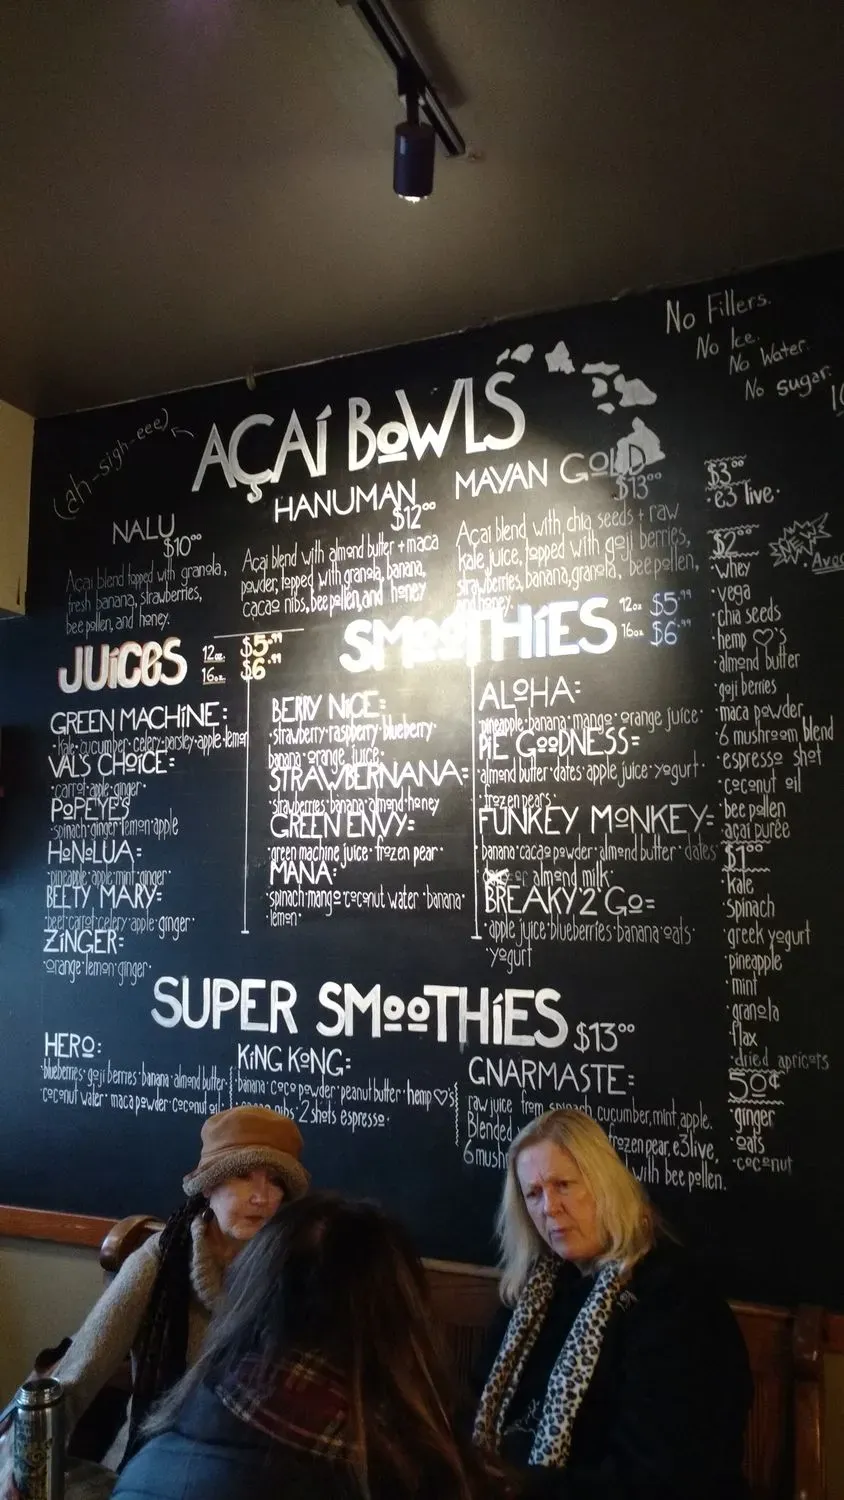 No Fillers.
No Ice.
No Water.
No sugar.
(ah-sigh-eee)
AÇAÍ BOWLS
NALU
$10⁰⁰
Açai blend topped with granola,
fresh banana, strawberries,
bee pollen, and honey.
HANUMAN
$12⁰⁰
Açai blend with almond butter + maca
powder, topped with granola, banana,
cacao nibs, bee pollen, and honey
MAYAN GOLD
$13⁰⁰
Açai blend with chia seeds + raw
kale juice, topped with goji berries,
strawberries, banana, granola, bee pollen,
and honey.
JUiCeS
12oz. $5.⁹⁹
16oz. $6.⁹⁹
GREEN MACHiNE:
·kale·cucumber·celery·parsley·apple·lemon
VAL'S CHOiCE:
·carrot·apple·ginger·
POPEYE'S
·spinach·ginger·lemon·apple
HONOLUA:
·pineapple·apple·mint·ginger·
BEETY MARY:
·beet·carrot·celery·apple·ginger·
ZiNGER:
·orange·lemon·ginger·
SMOOTHiES
12oz $5.⁹⁹
16oz $6.⁹⁹
BERRY NiCE:
·strawberry·raspberry·blueberry·
banana·orange juice·
STRAWBERNANA:
·strawberries·banana·almond·honey
GREEN ENVY:
·green machine juice·frozen pear·
MANA:
·spinach·mango·coconut water·banana·
·lemon·
ALOHA:
·pineapple·banana·mango·orange juice·
PiE GOODNESS:
·almond butter·dates·apple juice·yogurt·
·frozen pears·
FUNKEY MONKEY:
·banana·cacao powder·almond butter·dates
or almond milk·
BREAKY 2 GO:
·apple juice·blueberries·banana·oats·
·yogurt
SUPER SMOOTHiES $13⁰⁰
HERO:
·blueberries·goji berries·banana·almond butter·
·coconut water·maca powder·coconut oil·
KiNG KONG:
·banana·coco powder·peanut butter·hemp ♡'s
nibs·2 shots espresso·
GNARMASTE:
raw juice from spinach, cucumber, mint, apple.
Blended frozen pear, e3live,
6 mush with bee pollen.
$3⁰⁰
·e3 live·
$2⁰⁰
NEW
·whey
·vega
·chia seeds
·hemp ♡'s
·almond butter
·goji berries
·maca powder
·6 mushroom blend
·espresso shot
·coconut oil
·bee pollen
·açai purée
$1⁰⁰
·kale
·spinach
·greek yogurt
·pineapple
·mint
·granola
·flax
·dried apricots
50¢
·ginger
·oats
·coconut